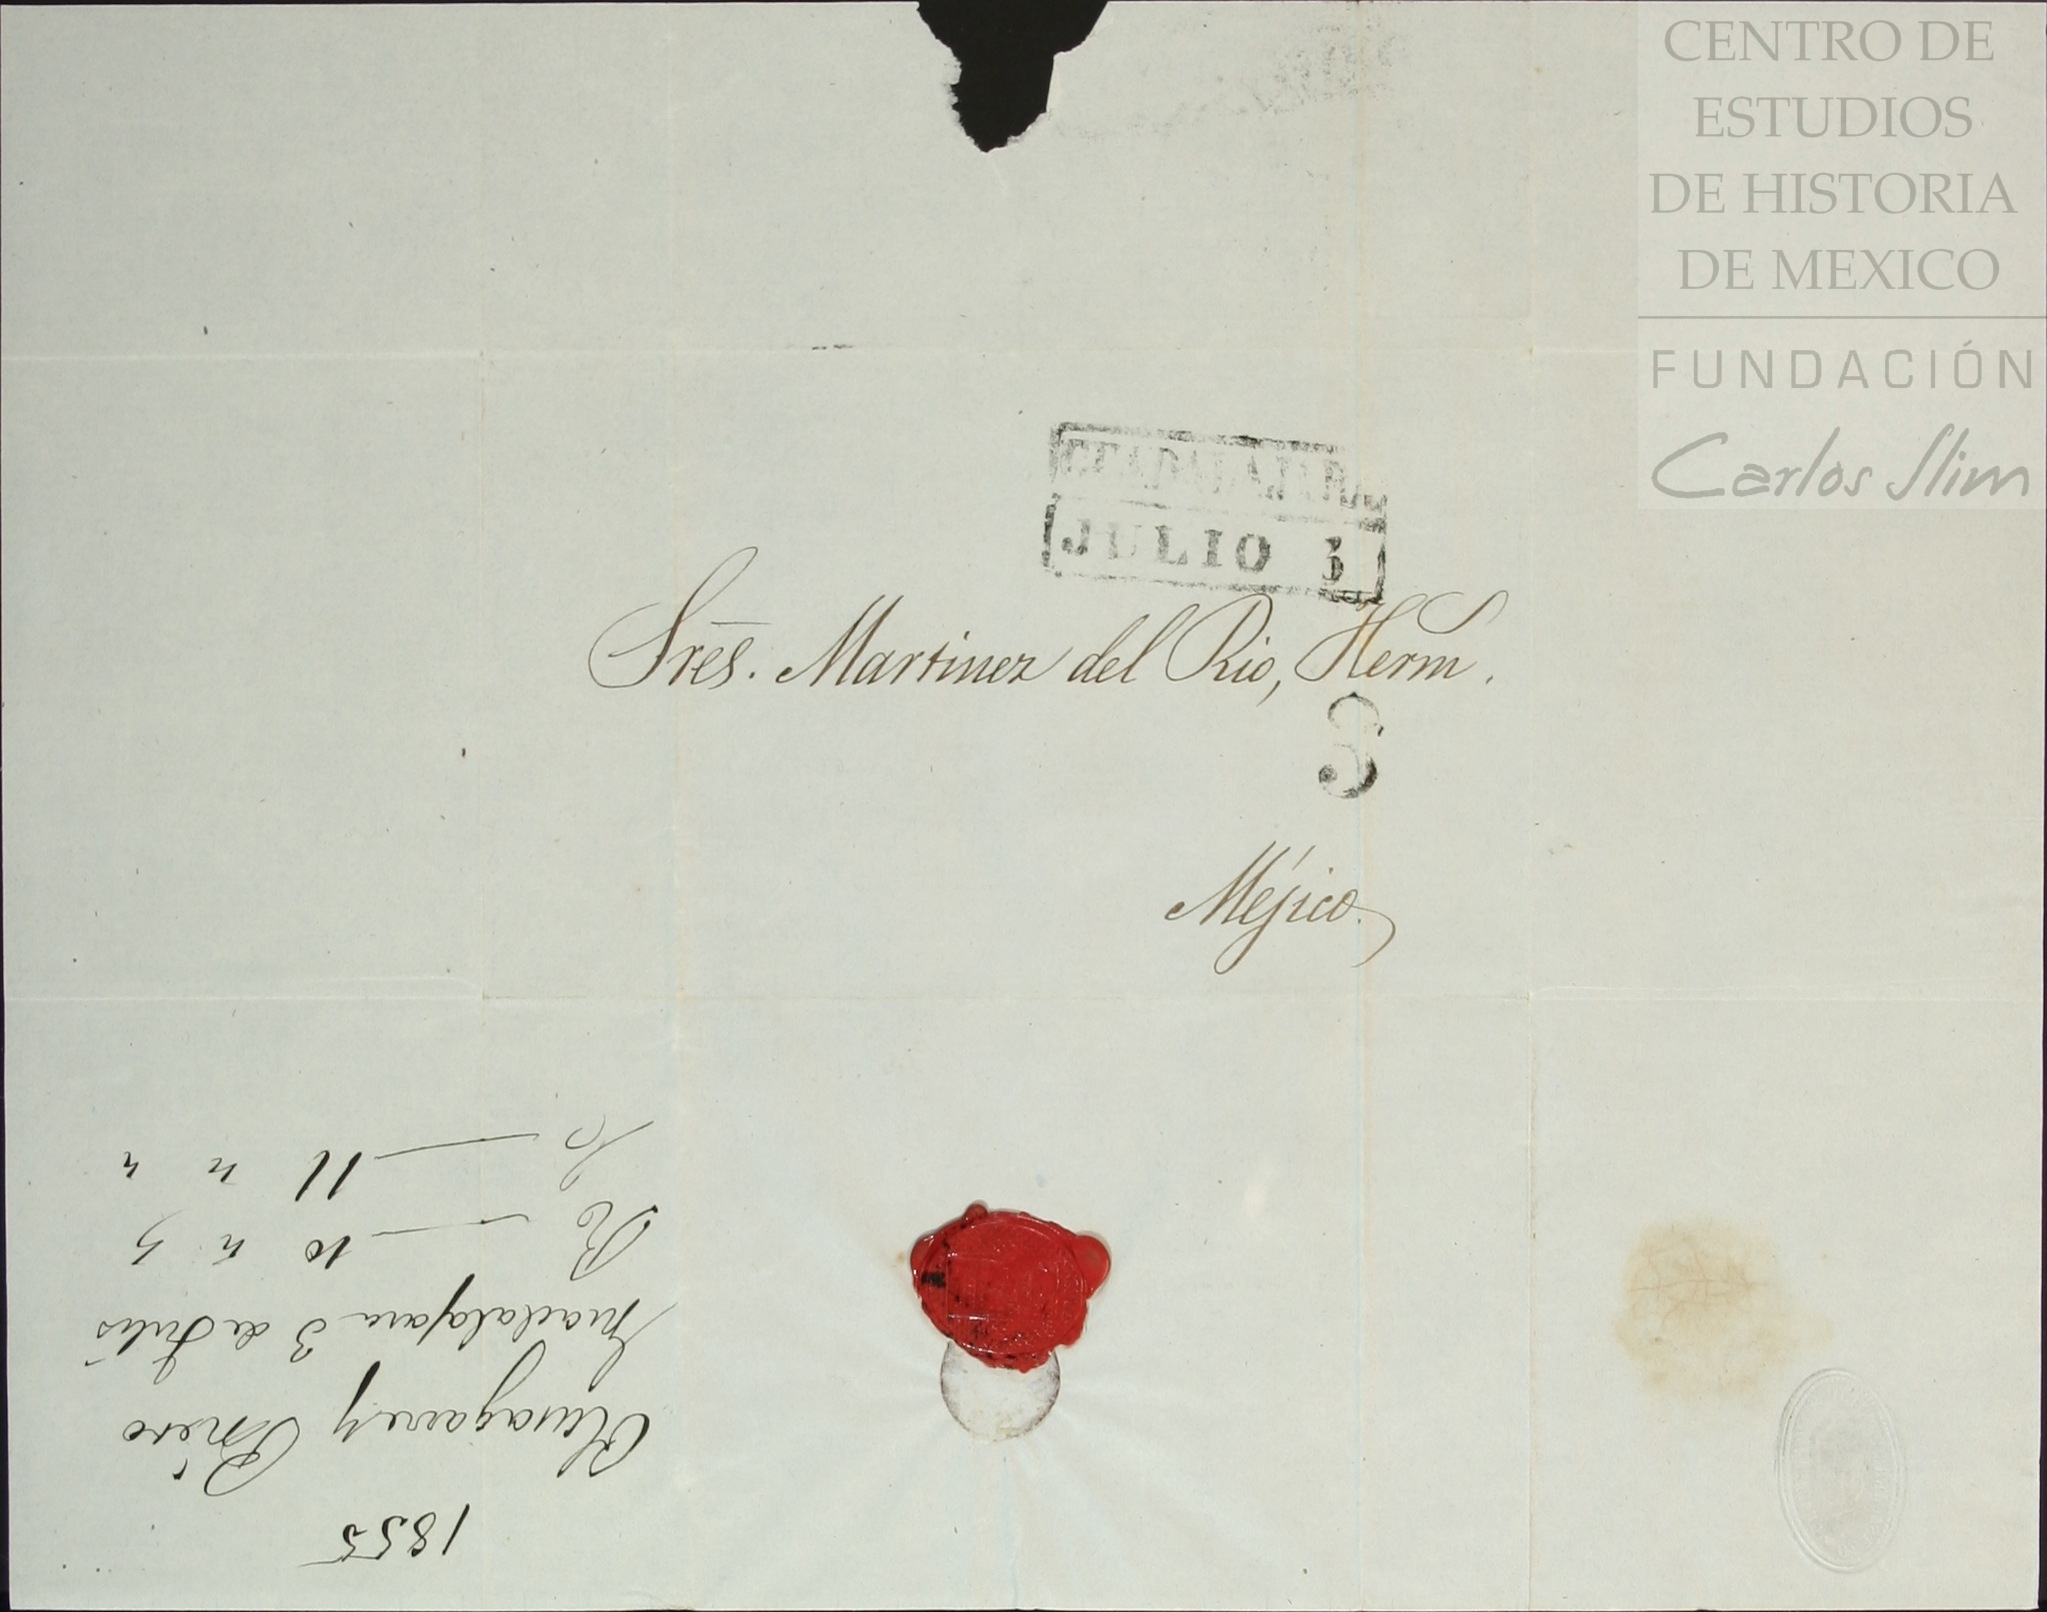 CENTRO DE
ESTUDIOS
DE HISTORIA
DE MEXICO
FUNDACIÓN
Carlos Slim
GUADALAJARA
JULIO 3
Sres. Martinez del Rio, Herm.
3
Méjico.
1855
Olasagarre y Prieto
Guadalajara 3 de Julio
R 10 " "
C 11 " "